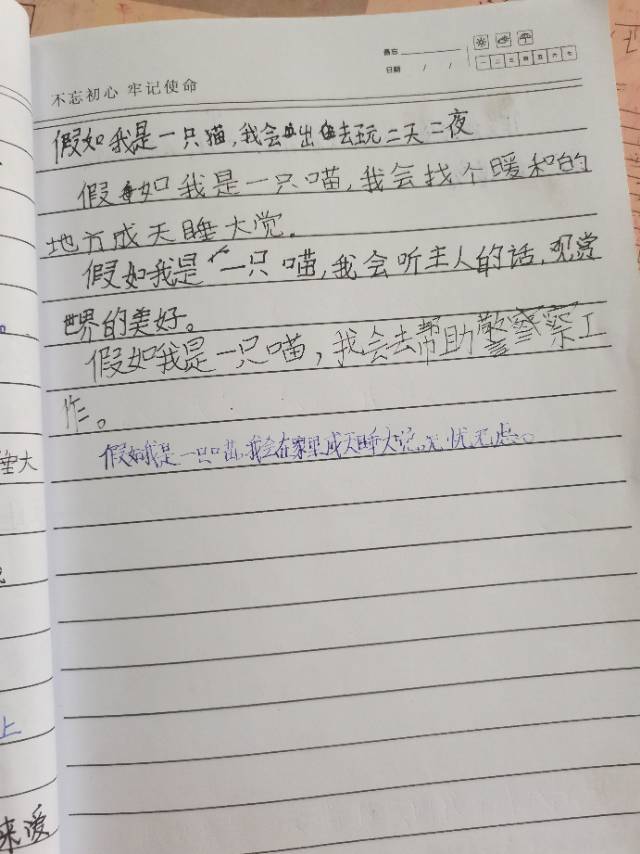 不忘初心 牢记使命
备忘
日期 / /
一 二 三 四 五 六 七
假如我是一只猫,我会出去玩二天二夜
假如我是一只喵,我会找个暖和的
地方成天睡大觉.
假如我是一只喵,我会听主人的话,观赏
世界的美好。
假如我是一只喵,我会去帮助警察工
作。
假如我是一只喵,我会在家里成天睡大觉,无忧无虑。
睡大
上
来爱